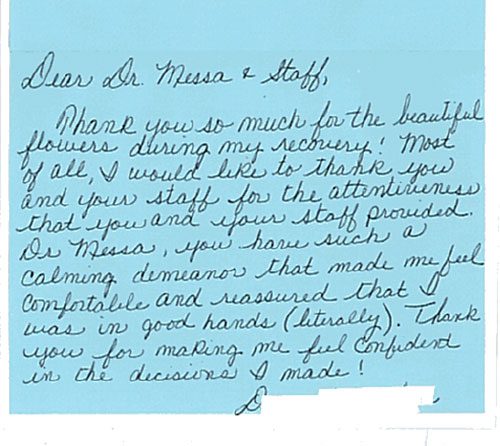 Dear Dr. Messa & Staff,
Thank you so much for the beautiful
flowers during my recovery! Most
of all, I would like to thank you
and your staff for the attentiveness
that you and your staff provided.
Dr Messa, you have such a
calming demeanor that made me feel
comfortable and reassured that I
was in good hands (literally). Thank
you for making me feel confident
in the decisions I made!
D